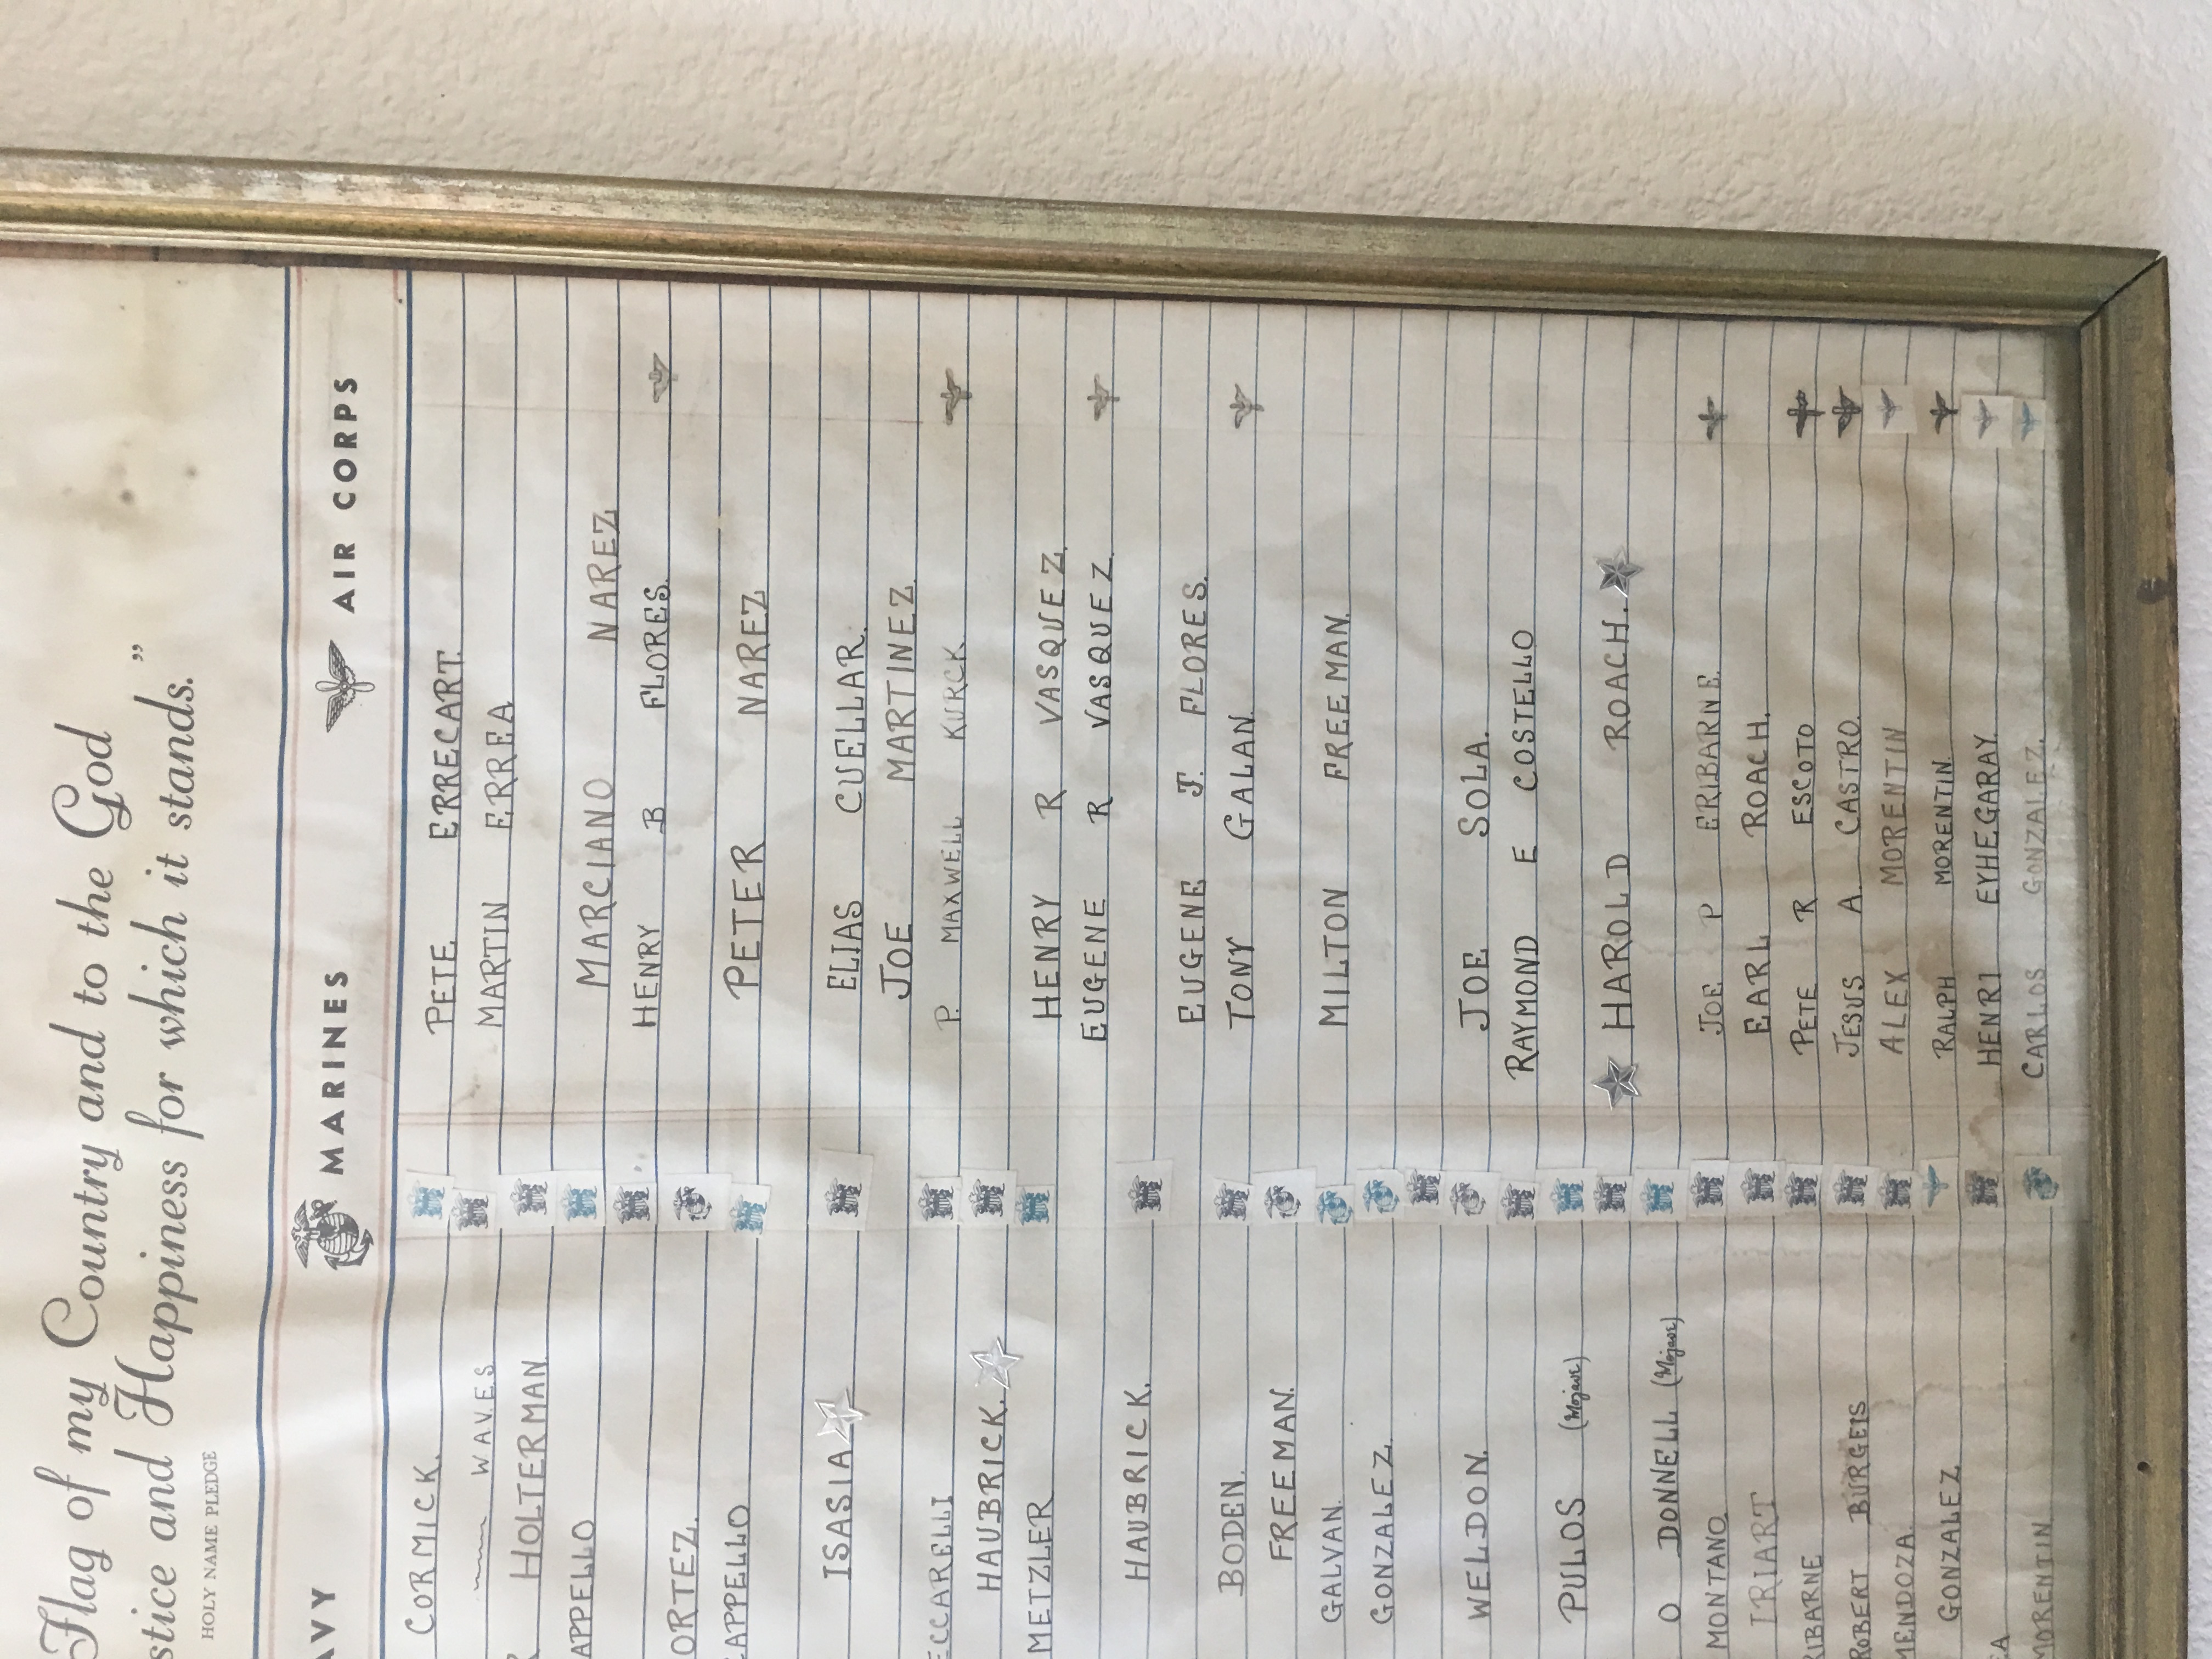 Flag of my Country and to the God
stice and Happiness for which it stands.”
HOLY NAME PLEDGE
AVY MARINES AIR CORPS
CORMICK. PETE ERRECART.
W.A.V.E.S MARTIN ERREA
HOLTERMAN
APPELLO MARCIANO NAREZ
HENRY B FLORES.
ORTEZ.
APPELLO PETER NAREZ
ISASIA ELIAS CUELLAR.
JOE MARTINEZ
ECCARELLI P. MAXWELL KURCK
HAUBRICK.
METZLER HENRY R VASQUEZ
EUGENE R VASQUEZ
HAUBRICK.
EUGENE J. FLORES.
BODEN. TONY GALAN.
FREEMAN.
GALVAN. MILTON FREEMAN.
GONZALEZ.
WELDON. JOE SOLA.
RAYMOND E COSTELLO
PULOS (Mojave)
HAROLD ROACH.
O DONNELL (Mojave)
MONTANO. JOE P ERIBARNE.
IRIART EARL ROACH.
RIBARNE PETE R ESCOTO
ROBERT BURGEIS JESUS A. CASTRO.
MENDOZA. ALEX MORENTIN
GONZALEZ. RALPH MORENTIN.
EA HENRI EYHEGARAY.
MORENTIN CARLOS GONZALEZ.